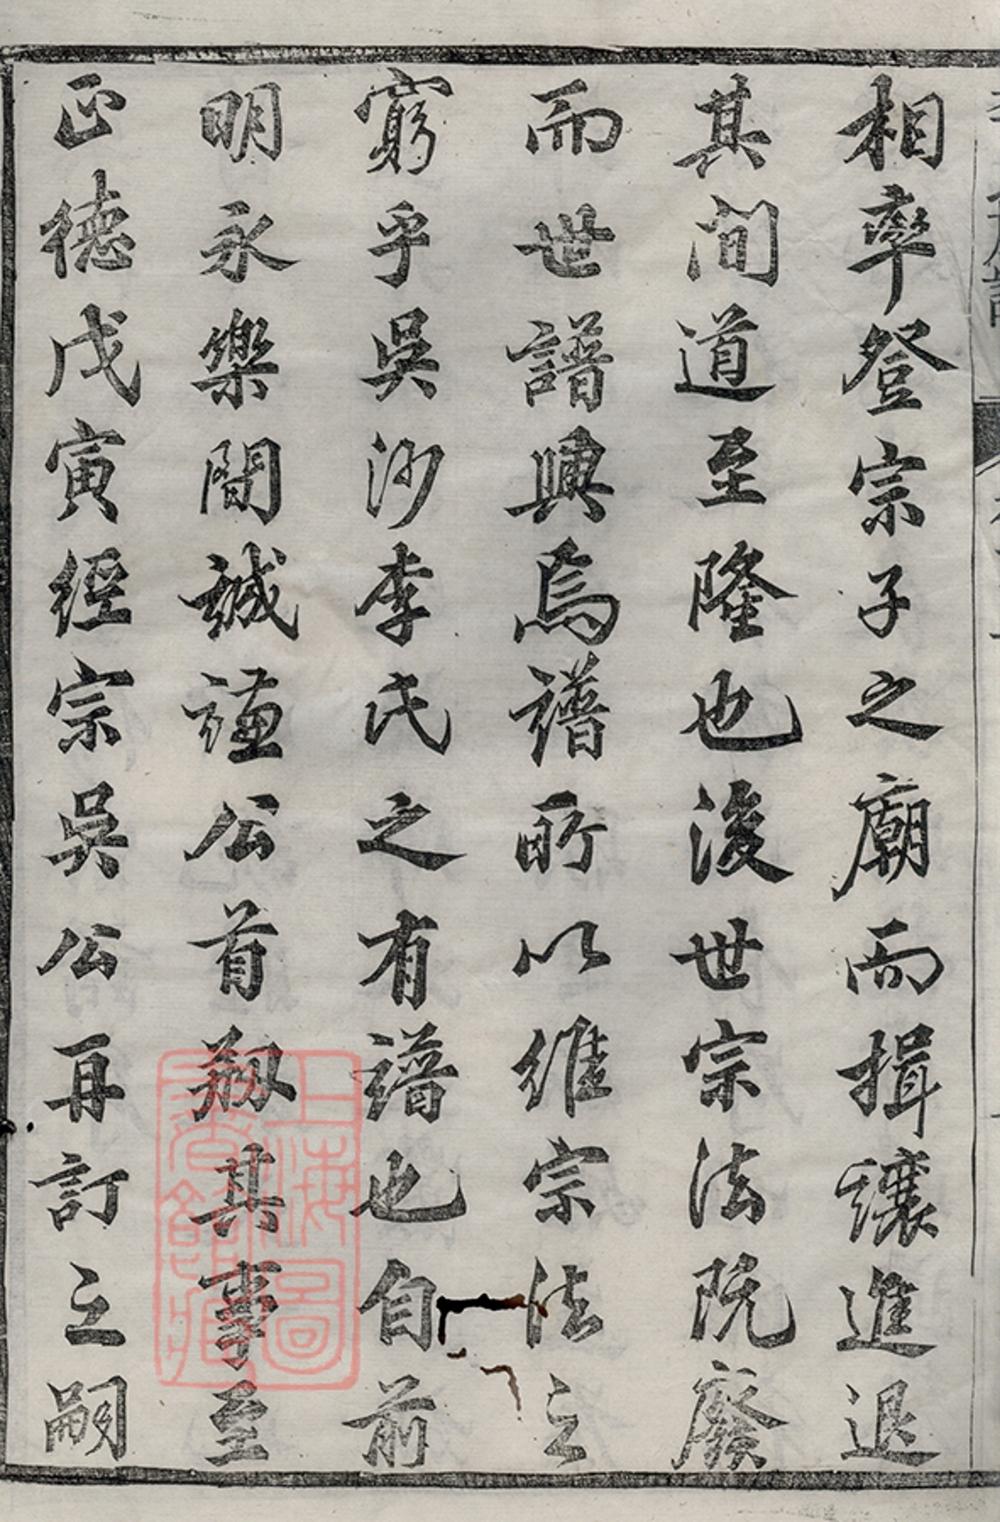 相率登宗子之廟而揖讓進退
其間道至隆也後世宗法既廢
而世譜興焉譜所以維宗法之
窮乎吳沙李氏之有譜也自前
明永樂間誠謹公首剏其事至
正德戊寅經宗吳公再訂之嗣
上海圖書館藏